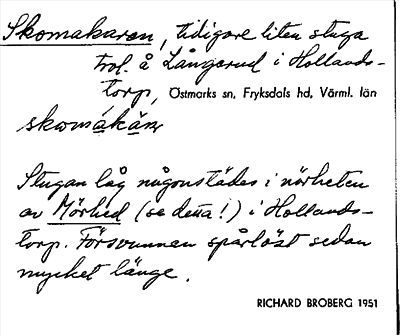 Skomakaren, tidigare liten stuga
trol. å Långerud i Hollands-
torp, Östmarks sn, Fryksdals hd, Värml. län
skomákàṇ
Stugan låg någonstädes i närheten
av Mörhed (se detta!) i Hollands-
torp. Försvunnen spårlöst sedan
mycket länge.
RICHARD BROBERG 1951